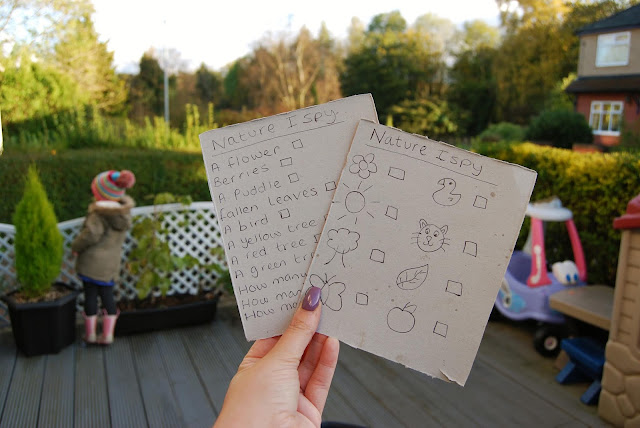 Nature I spy
A flower
Berries
A Puddle
fallen leaves
A bird
A yellow tree
A red tree
A green tre
How many
How ma
How ma
Nature I spy